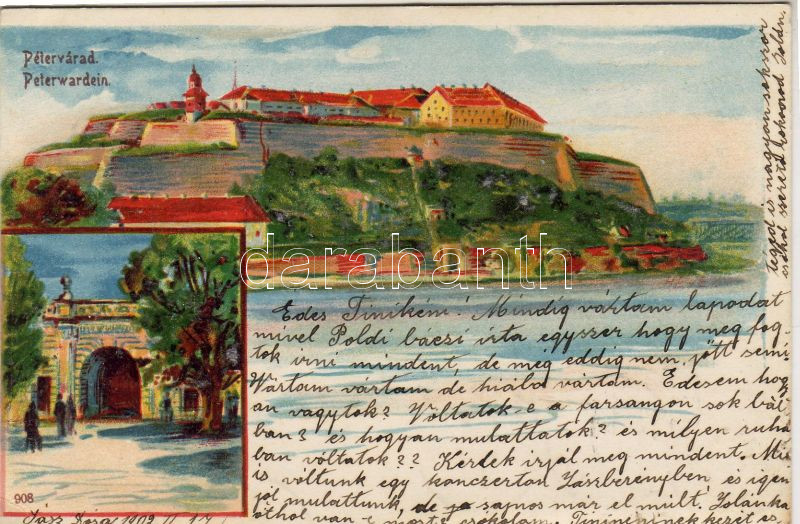 Pétervárad.
Peterwardein.
darabanth
Édes Tinikém! Mindig vártam lapodat
mivel Poldi bácsi írta egyszer hogy meg fog-
tok irni mindent, de még eddig nem jött semi
Vártam vártam de hiába vártam. Édesem hogy
an vagytok? Voltatok-e a farsangon sok bál-
ban? és hogyan mulattatok? és milyen ruhá
ban voltatok?? Kérlek irjál meg mindent, Mi
is voltunk egy konczerten Jászberényben és igen
jól mulattunk, de sajnos már el múlt. Jolánka
othol van
908
Jász Dósa
téged is nagyon sokszor